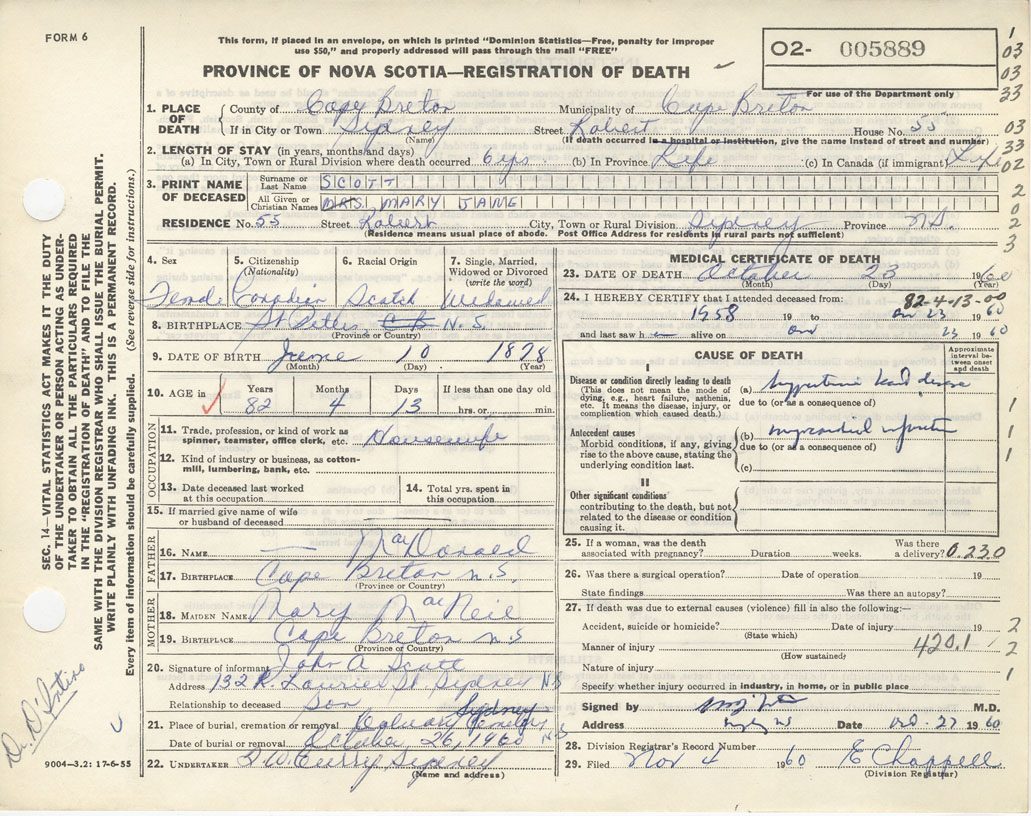 FORM 6
This form, if placed in an envelope, on which is printed "Dominion Statistics—Free, penalty for improper
use $50," and properly addressed will pass through the mail "FREE"
PROVINCE OF NOVA SCOTIA—REGISTRATION OF DEATH
O2- 005889
For use of the Department only
1. PLACE OF DEATH County of Cape Breton Municipality of Cape Breton
If in City or Town Sydney (Name) Street Robert House No. 55
(If death occurred in a hospital or institution, give the name instead of street and number)
2. LENGTH OF STAY (in years, months and days)
(a) In City, Town or Rural Division where death occurred 6 yrs. (b) In Province Life (c) In Canada (if immigrant) Life
3. PRINT NAME OF DECEASED Surname or Last Name SCOTT
All Given or Christian Names MRS MARY JANE
RESIDENCE No. 55 Street Robert City, Town or Rural Division Sydney Province N.S.
(Residence means usual place of abode. Post Office Address for residents in rural parts not sufficient)
4. Sex 5. Citizenship (Nationality) 6. Racial Origin 7. Single, Married, Widowed or Divorced (write the word)
Female Canadian Scotch Widowed
8. BIRTHPLACE St Peters, C B N.S.
(Province or Country)
9. DATE OF BIRTH June 10 1878
(Month) (Day) (Year)
10. AGE in Years Months Days If less than one day old
82 4 13 hrs. or min.
OCCUPATION
11. Trade, profession, or kind of work as spinner, teamster, office clerk, etc. Housewife
12. Kind of industry or business, as cotton-mill, lumbering, bank, etc.
13. Date deceased last worked at this occupation 14. Total yrs. spent in this occupation
15. If married give name of wife or husband of deceased
FATHER
16. NAME MacDonald
17. BIRTHPLACE Cape Breton N.S.
(Province or Country)
MOTHER
18. MAIDEN NAME Mary MacNeil
19. BIRTHPLACE Cape Breton N.S
(Province or Country)
20. Signature of informant John A Scott
Address 132 R. Laurier St Sydney NS
Relationship to deceased Son
21. Place of burial, cremation or removal Calvary Cemetery Sydney NS
Date of burial or removal October 26, 1960
22. UNDERTAKER Curry Sydney
(Name and address)
MEDICAL CERTIFICATE OF DEATH
23. DATE OF DEATH October 23 1960
(Month) (Day) (Year)
82-4-13-00
24. I HEREBY CERTIFY that I attended deceased from:
1958 19 to Oct 23 19 60
and last saw h alive on Oct 23 19 60
CAUSE OF DEATH
Approximate interval between onset and death
I
Disease or condition directly leading to death
(This does not mean the mode of dying, e.g., heart failure, asthenia, etc. It means the disease, injury, or complication which caused death.)
(a) heart disease
due to (or as a consequence of)
Antecedent causes
Morbid conditions, if any, giving rise to the above cause, stating the underlying condition last.
(b) myocardial infarction
due to (or as a consequence of)
(c)
II
Other significant conditions contributing to the death, but not related to the disease or condition causing it.
25. If a woman, was the death associated with pregnancy? Duration weeks. Was there a delivery? 0.230
26. Was there a surgical operation? Date of operation 19
State findings Was there an autopsy?
27. If death was due to external causes (violence) fill in also the following:—
Accident, suicide or homicide? Date of injury 19
(State which)
Manner of injury 420.1
(How sustained)
Nature of injury
Specify whether injury occurred in industry, in home, or in public place
Signed by M.D.
Address Date Oct. 27 19 60
28. Division Registrar's Record Number
29. Filed Nov 4 19 60 E Chappell
(Division Registrar)
SEC. 14—VITAL STATISTICS ACT MAKES IT THE DUTY
OF THE UNDERTAKER OR PERSON ACTING AS UNDER-
TAKER TO OBTAIN ALL THE PARTICULARS REQUIRED
IN THE "REGISTRATION OF DEATH" AND TO FILE THE
SAME WITH THE DIVISION REGISTRAR WHO SHALL ISSUE THE BURIAL PERMIT.
WRITE PLAINLY WITH UNFADING INK. THIS IS A PERMANENT RECORD.
Every item of information should be carefully supplied. (See reverse side for instructions.)
9004—3.2: 17-6-55
1
03
03
33
03
33
02
2
0
2
3
1
1
1
2
2
1